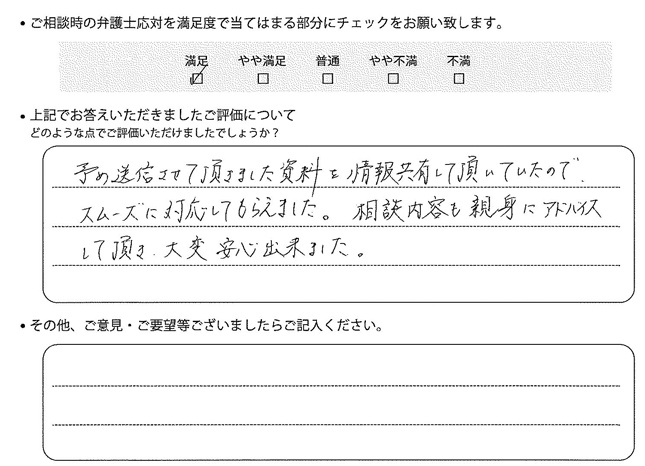 • ご相談時の弁護士応対を満足度で当てはまる部分にチェックをお願い致します。
満足 やや満足 普通 やや不満 不満
• 上記でお答えいただきましたご評価について
どのような点でご評価いただけましたでしょうか？
予め送信させて頂きました資料を情報共有して頂いていたので、
スムーズに対応してもらえました。 相談内容も親身にアドバイス
して頂き、大変安心出来ました。
• その他、ご意見・ご要望等ございましたらご記入ください。